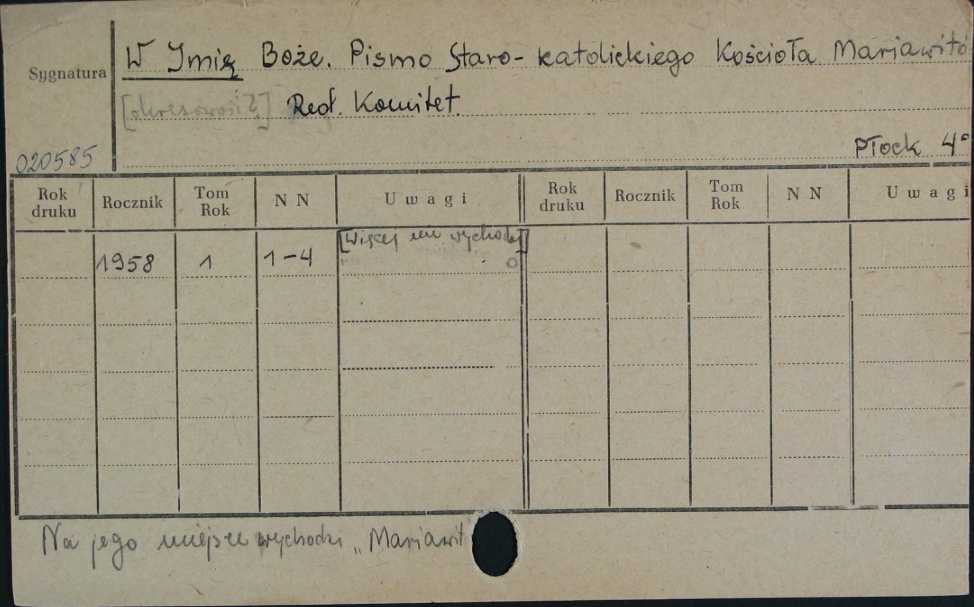 Sygnatura
W Imię Boże. Pismo Staro-katolickiego Kościoła Mariawitó
[okresowość?] Red. Komitet.
020585
Płock 4°
Rok druku Rocznik Tom Rok N N Uwagi Rok druku Rocznik Tom Rok N N Uwagi
[Więcej nie wychodzi]
1958 1 1-4
Na jego miejsce wychodzi „Mariawit